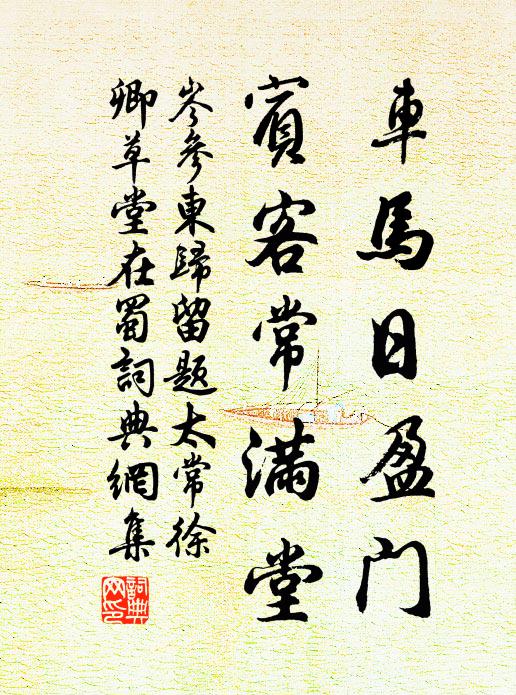 車馬日盈门
賓客常滿堂
岑參東歸留题太常徐
卿草堂在蜀詞典網集
詞典网印